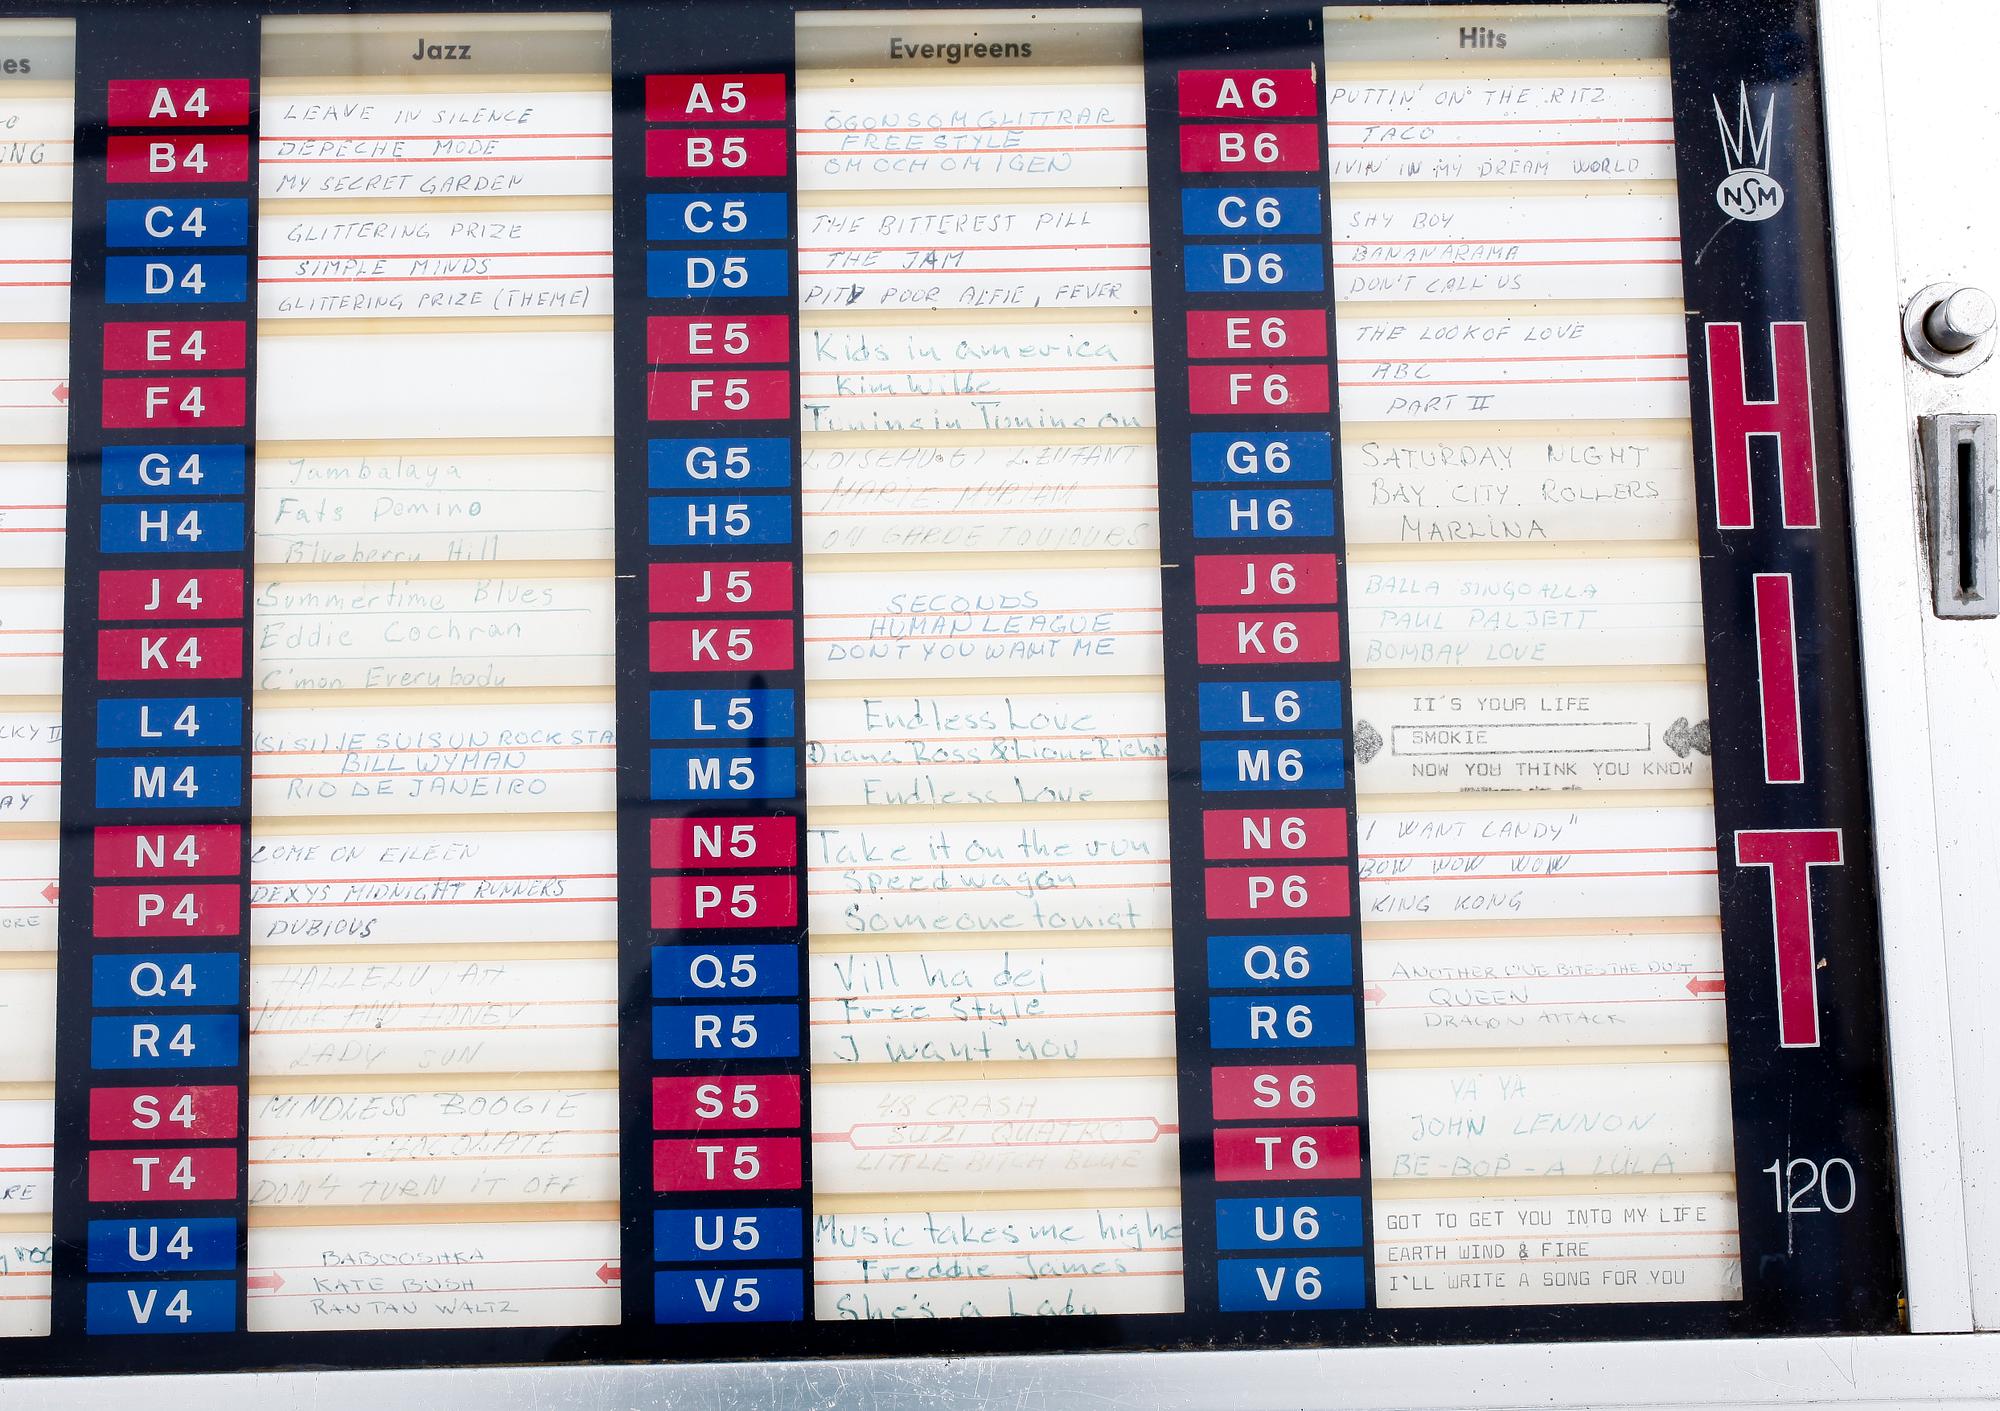 es
Jazz
Evergreens
Hits
NG
CKY II
AY
ORE
RE
A4
B4
LEAVE IN SILENCE
DEPECHE MODE
MY SECRET GARDEN
C4
D4
GLITTERING PRIZE
SIMPLE MINDS
GLITTERING PRIZE (THEME)
E4
F4
G4
H4
Jambalaya
Fats Domino
Blueberry Hill
J4
K4
Summertime Blues
Eddie Cochran
C'mon Everybody
L4
M4
(SI SI) JE SUIS UN ROCK STA
BILL WYMAN
RIO DE JANEIRO
N4
P4
COME ON EILEEN
DEXYS MIDNIGHT RUNNERS
DUBIOUS
Q4
R4
HALLELUJAH
MILK AND HONEY
LADY SUN
S4
T4
MINDLESS BOOGIE
HOT CHOCOLATE
DON'T TURN IT OFF
U4
V4
BABOOSHKA
KATE BUSH
RAN TAN WALTZ
A5
B5
ÖGON SOM GLITTRAR
FREESTYLE
OM OCH OM IGEN
C5
D5
THE BITTEREST PILL
THE JAM
PITY POOR ALFIE, FEVER
E5
F5
Kids in america
Kim Wilde
Tuning in Tuning on
G5
H5
LOISEAU ET L'ENFANT
MARIE MYRIAM
ON GARDE TOUJOURS
J5
K5
SECONDS
HUMAN LEAGUE
DONT YOU WANT ME
L5
M5
Endless Love
Diana Ross & Lione Richi
Endless Love
N5
P5
Take it on the run
Speedwagon
Someone tonigt
Q5
R5
Vill ha dej
Free Style
I want you
S5
T5
48 CRASH
SUZI QUATRO
LITTLE BITCH BLUE
U5
V5
Music takes me highe
Freddie James
She's a Lady
A6
B6
PUTTIN' ON THE RITZ
TACO
IVIN' IN MY DREAM WORLD
C6
D6
SHY BOY
BANANARAMA
DON'T CALL US
E6
F6
THE LOOK OF LOVE
ABC
PART II
G6
H6
SATURDAY NIGHT
BAY CITY ROLLERS
MARLINA
J6
K6
BALLA SINGOALLA
PAUL PALJETT
BOMBAY LOVE
L6
M6
IT'S YOUR LIFE
SMOKIE
NOW YOU THINK YOU KNOW
N6
P6
"I WANT CANDY"
BOW WOW WOW
KING KONG
Q6
R6
ANOTHER ONE BITES THE DUST
QUEEN
DRAGON ATTACK
S6
T6
YA YA
JOHN LENNON
BE-BOP-A LULA
U6
V6
GOT TO GET YOU INTO MY LIFE
EARTH WIND & FIRE
I'LL WRITE A SONG FOR YOU
NSM
HIT
120